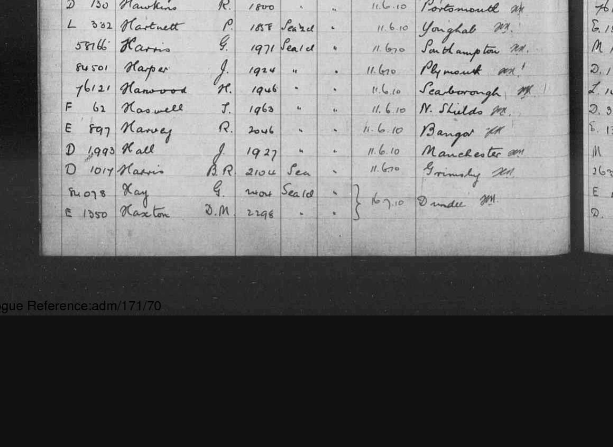 D 130 Hawkins R. 1800 " " 11.6.10 Portsmouth
L 332 Hartnett P. 1858 Sealed " 11.6.10 Youghal
58766 Harris G. 1971 Sealed " 11.6.10 Southampton
84501 Harper J. 1924 " " 11.6.10 Plymouth
76121 Harwood H. 1946 " " 11.6.10 Scarborough
F 62 Haswell T. 1963 " " 11.6.10 N. Shields
E 897 Harvey R. 2046 " " 11.6.10 Bangor
D 1,993 Hall J. 1927 " " 11.6.10 Manchester
D 1017 Harris B.R. 2104 Sea " 11.6.10 Grimsby
84078 Hay G. Sealed " 16.7.10 Dundee
E 1350 Haxton D.M. 2298 " "
gue Reference:adm/171/70